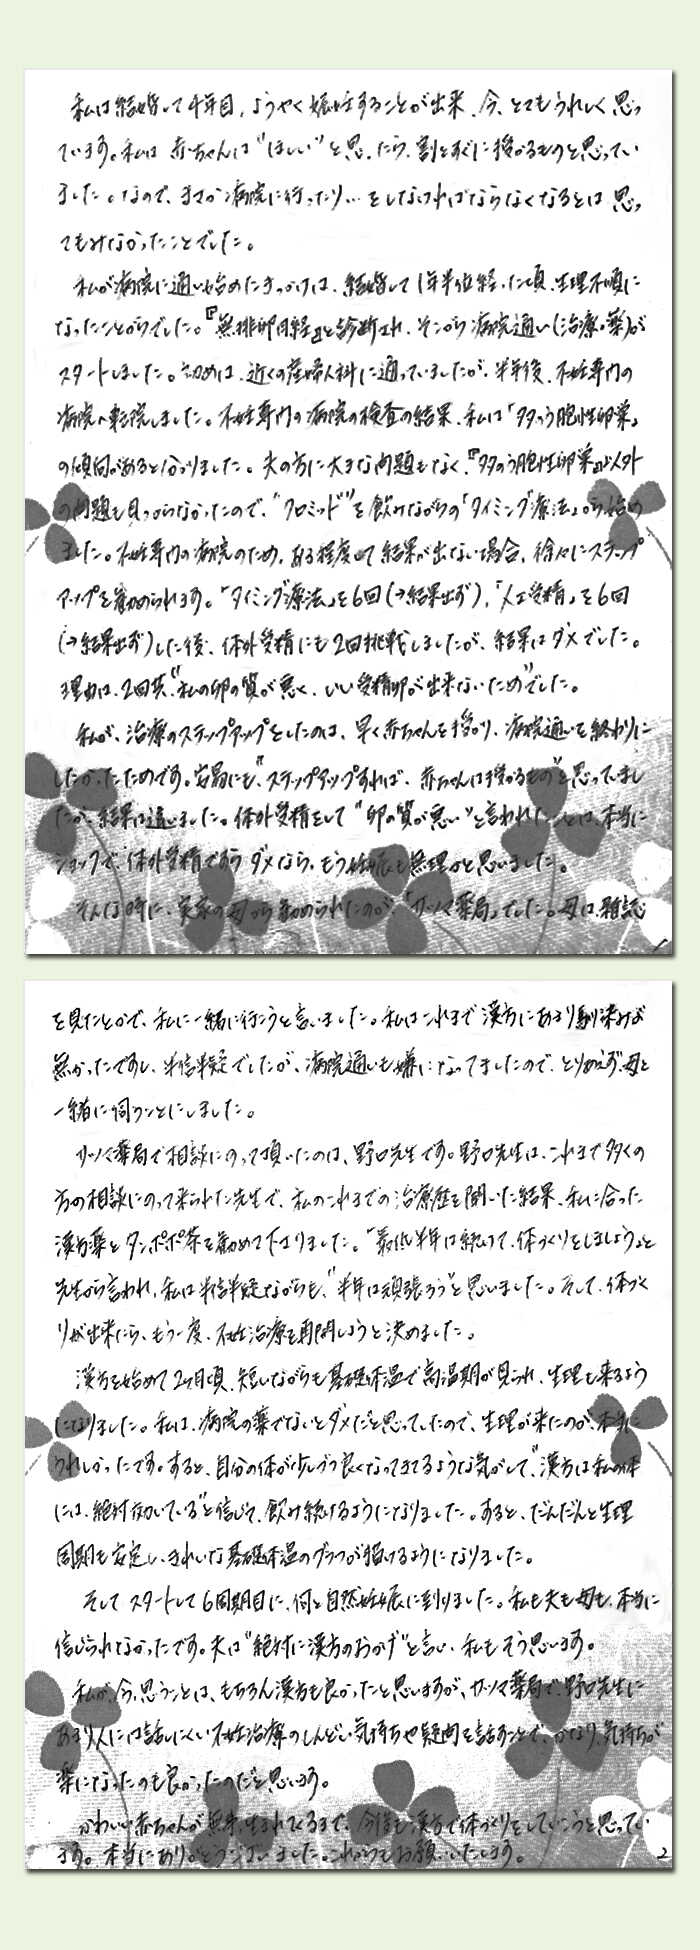 私は結婚して4年目、ようやく妊娠することが出来、今、とてもうれしく思っ
ています。私は 赤ちゃんは"ほしい"と思ったら、割とすぐに授かるものと思ってい
ました。なので、まさか病院に行ったり…をしなければならなくなるとは思っ
てもみなかったことでした。
私が病院に通い始めたきっかけは、結婚して1年半位経った頃、生理不順に
なったことからでした。『無排卵月経』と診断され、そこから病院通い(治療・薬)が
スタートしました。初めは、近くの産婦人科に通っていましたが、半年後、不妊専門の
病院へ転院しました。不妊専門の病院の検査の結果、私は「多のう胞性卵巣」
の傾向があると分かりました。夫の方に大きな問題もなく、『多のう胞性卵巣』以外
の問題も見つからなかったので、"クロミッド"を飲みながらの「タイミング療法」から始め
ました。不妊専門の病院のため、ある程度して結果が出ない場合、徐々にステップ
アップを勧められます。「タイミング療法」を6回(→結果出ず)、「人工受精」を6回
(→結果出ず)した後、体外受精にも2回挑戦しましたが、結果はダメでした。
理由は、2回共、"私の卵の質が悪く、いい受精卵が出来ないため"でした。
私が、治療のステップアップをしたのは、早く赤ちゃんを授かり、病院通いを終わりに
したかったためです。安易にも、"ステップアップすれば、赤ちゃんは授かるもの"と思っていまし
たが、結果は違いました。体外受精をして"卵の質が悪い"と言われたことは、本当に
ショックで、体外受精ですらダメなら、もう妊娠も無理かと思いました。
そんな時に、実家の母から勧められたのが、「サツマ薬局」でした。母は、雑誌
1
を見たとかで、私に一緒に行こうと言いました。私はこれまで漢方にあまり馴染みが
無かったですし、半信半疑でしたが、病院通いも嫌になってましたので、とりあえず、母と
一緒に伺うことにしました。
サツマ薬局で相談にのって頂いたのは、野口先生です。野口先生は、これまで多くの
方の相談にのって来られた先生で、私のこれまでの治療歴を聞いた結果、私に合った
漢方薬とタンポポ茶を勧めて下さりました。「最低半年は続けて、体づくりをしましょう」と
先生から言われ、私は半信半疑ながらも、"半年は頑張ろう"と思いました。そして、体づく
りが出来たら、もう一度、不妊治療を再開しようと決めました。
漢方を始めて2ヶ月頃、短いながらも基礎体温で高温期が見られ、生理も来るよう
になりました。私は、病院の薬でないとダメだと思っていたので、生理が来たのが、本当に
うれしかったです。すると、自分の体が少しづつ良くなってきてるような気がして、"漢方は私の体
には、絶対効いている"と信じて、飲み続けるようになりました。すると、だんだんと生理
周期も安定し、きれいな基礎体温のグラフが描けるようになりました。
そして スタートして6周期目に、何と自然妊娠に到りました。私も夫も母も、本当に
信じられなかったです。夫は"絶対に漢方のおかげ"と言い、私もそう思います。
私が、今、思うことは、もちろん漢方も良かったと思いますが、サツマ薬局で、野口先生に
あまり人には話しにくい不妊治療のしんどい気持ちや疑問を話すことで、かなり、気持ちが
楽になったのも良かったのだと思います。
かわいい赤ちゃんが無事、生まれてくるまで、今後も漢方で体づくりをしていこうと思ってい
ます。本当にありがとうございました。これからもお願いいたします。
2